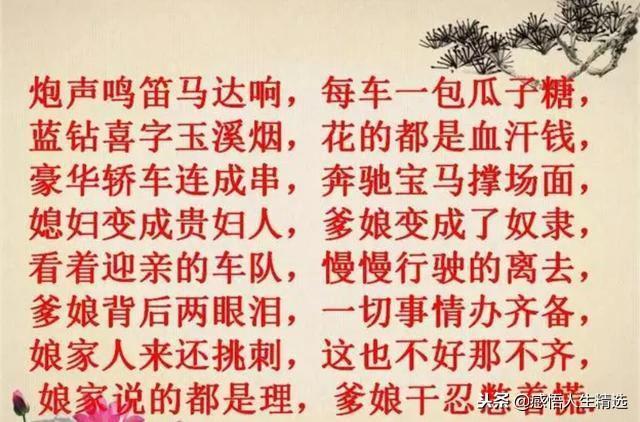 炮声鸣笛马达响，每车一包瓜子糖，
蓝钻喜字玉溪烟，花的都是血汗钱，
豪华轿车连成串，奔驰宝马撑场面，
媳妇变成贵妇人，爹娘变成了奴隶，
看着迎亲的车队，慢慢行驶的离去，
爹娘背后两眼泪，一切事情办齐备，
娘家人来还挑刺，这也不好那不齐，
娘家说的都是理，爹娘干忍憋着慌
头条 @感悟人生精选